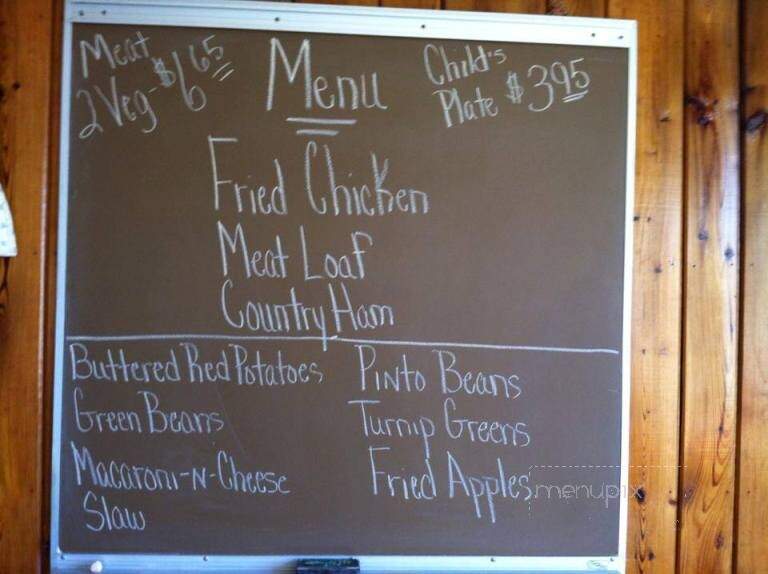 Meat
2 Veg- $6.65
Menu
Child's
Plate $3.95
Fried Chicken
Meat Loaf
Country Ham
Buttered Red Potatoes
Green Beans
Macaroni-N-Cheese
Slaw
Pinto Beans
Turnip Greens
Fried Apples
menupix